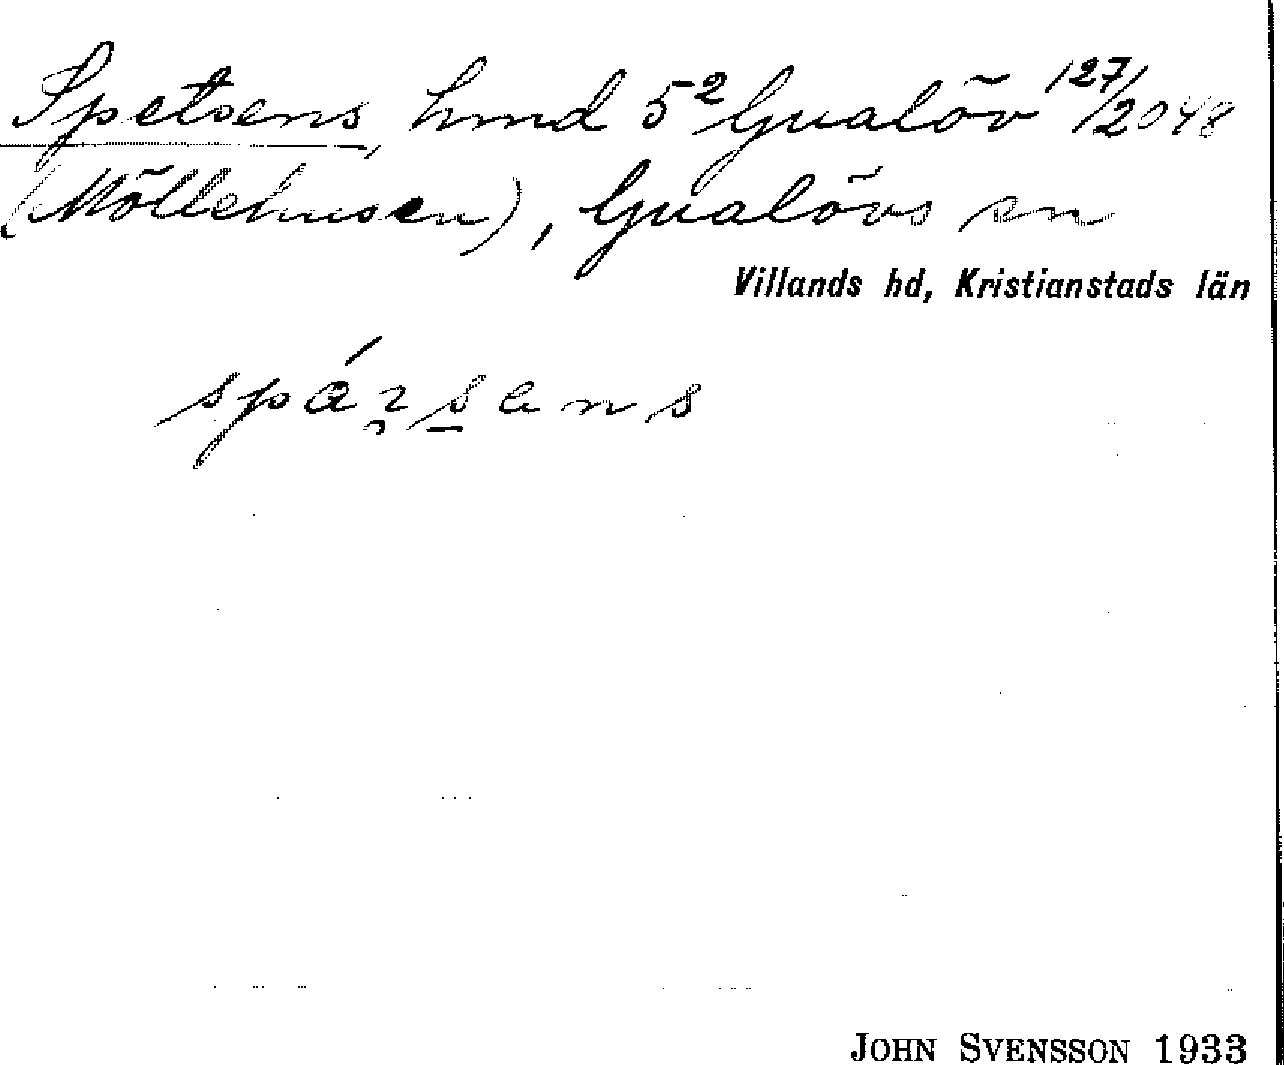 Spetsens, hmd 5² Gualöv 127/2048
(Möllehusen), Gualövs sn
Villands hd, Kristianstads län
JOHN SVENSSON 1933